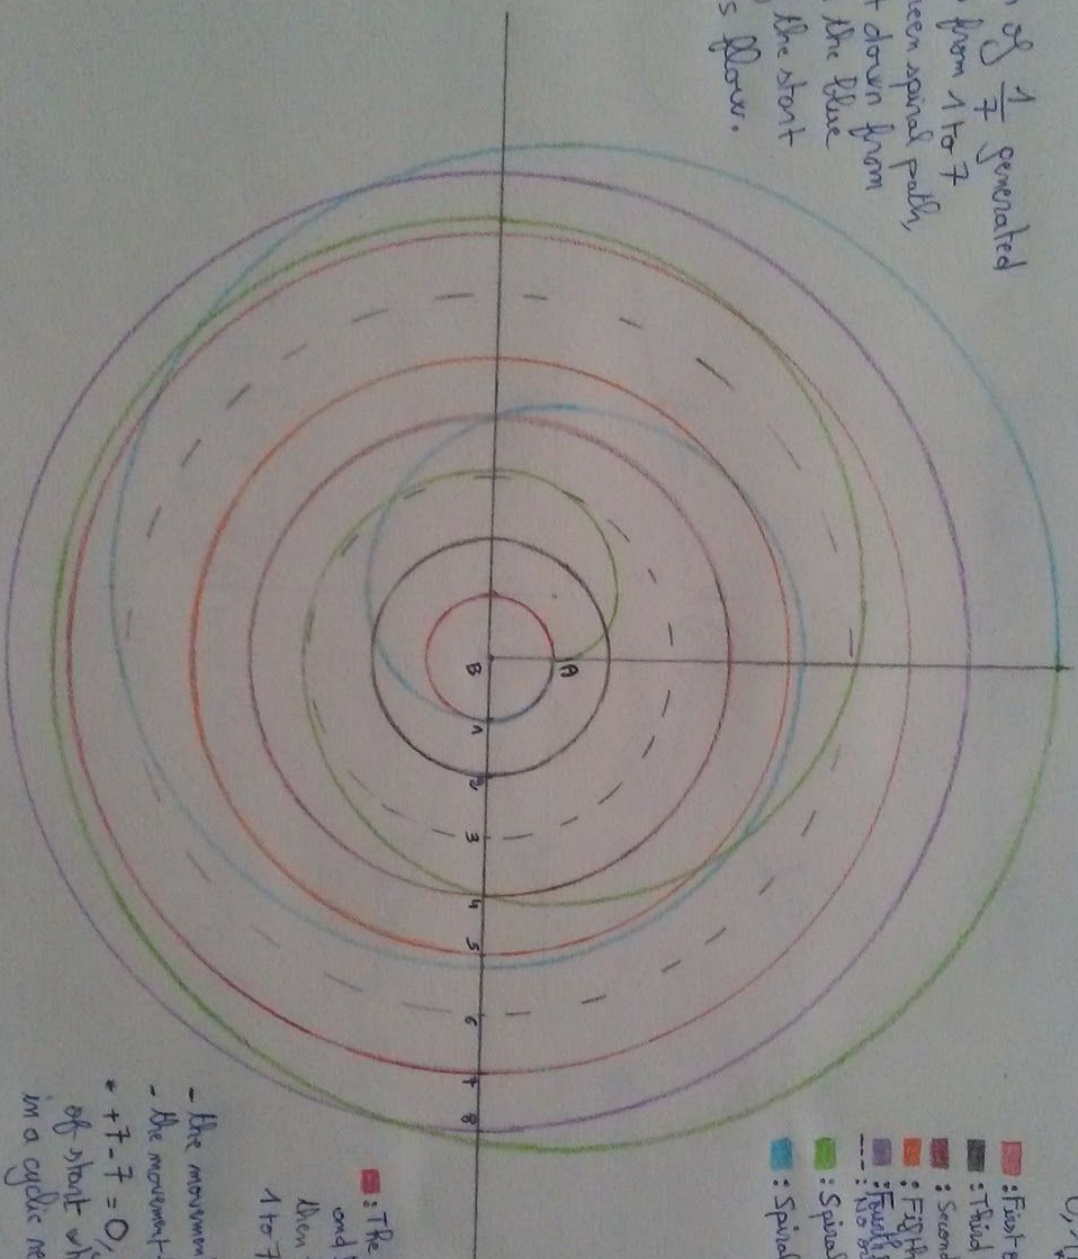 of 1/7 generated
from 1 to 7
spiral path,
down from
the blue
the start
flow.
B
A
1
2
3
4
5
6
7
8
: First
: Third
: Second
: Fifth
: Fourth
: No
: Spiral
: Spiral
: The
and
then
1 to 7
- the movement
- the movement
* +7-7=0,
of start
in a cyclic